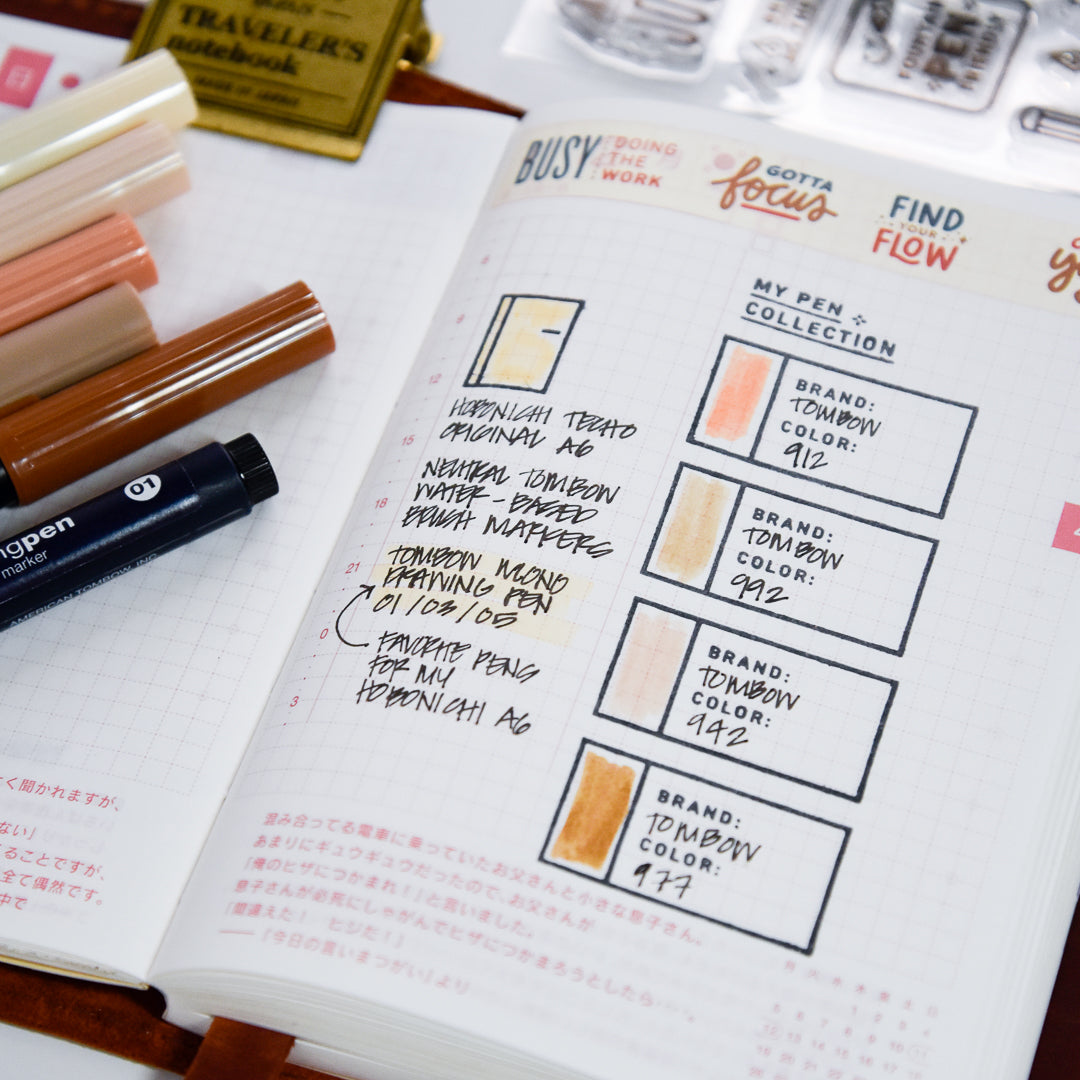 TRAVELER'S
notebook
日
PEN
BUSY
DOING
THE
WORK
GOTTA
focus
FIND
YOUR
FLOW
MY PEN
COLLECTION
BRAND:
TOMBOW
COLOR:
912
BRAND:
TOMBOW
COLOR:
992
BRAND:
TOMBOW
COLOR:
942
BRAND:
TOMBOW
COLOR:
977
9
12
15
18
21
0
3
HOBONICHI TECHO
ORIGINAL A6
NEUTRAL TOMBOW
WATER-BASED
BRUSH MARKERS
TOMBOW MONO
DRAWING PEN
01/03/05
FAVORITE PENS
FOR MY
HOBONICHI A6
01
ngpen
marker
AMERICAN TOMBOW, INC.
く聞かれますが、
ない」
ることですが、
全て偶然です。
中で
混み合ってる電車に乗っていたお父さんと小さな息子さん。
あまりにギュウギュウだったので、お父さんが
「俺のヒザにつかまれ！」と言いました。
息子さんが必死にしゃがんでヒザにつかまろうとしたら‥‥、
「間違えた！　ヒジだ！」
——「今日の言いまつがい」より
月 火 水 木 金 土 日